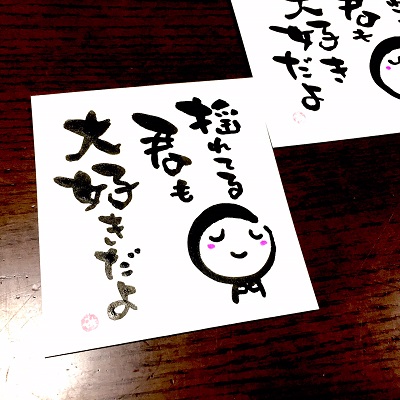 揺れてる
君も
大好きだよ
君も
大好きだよ